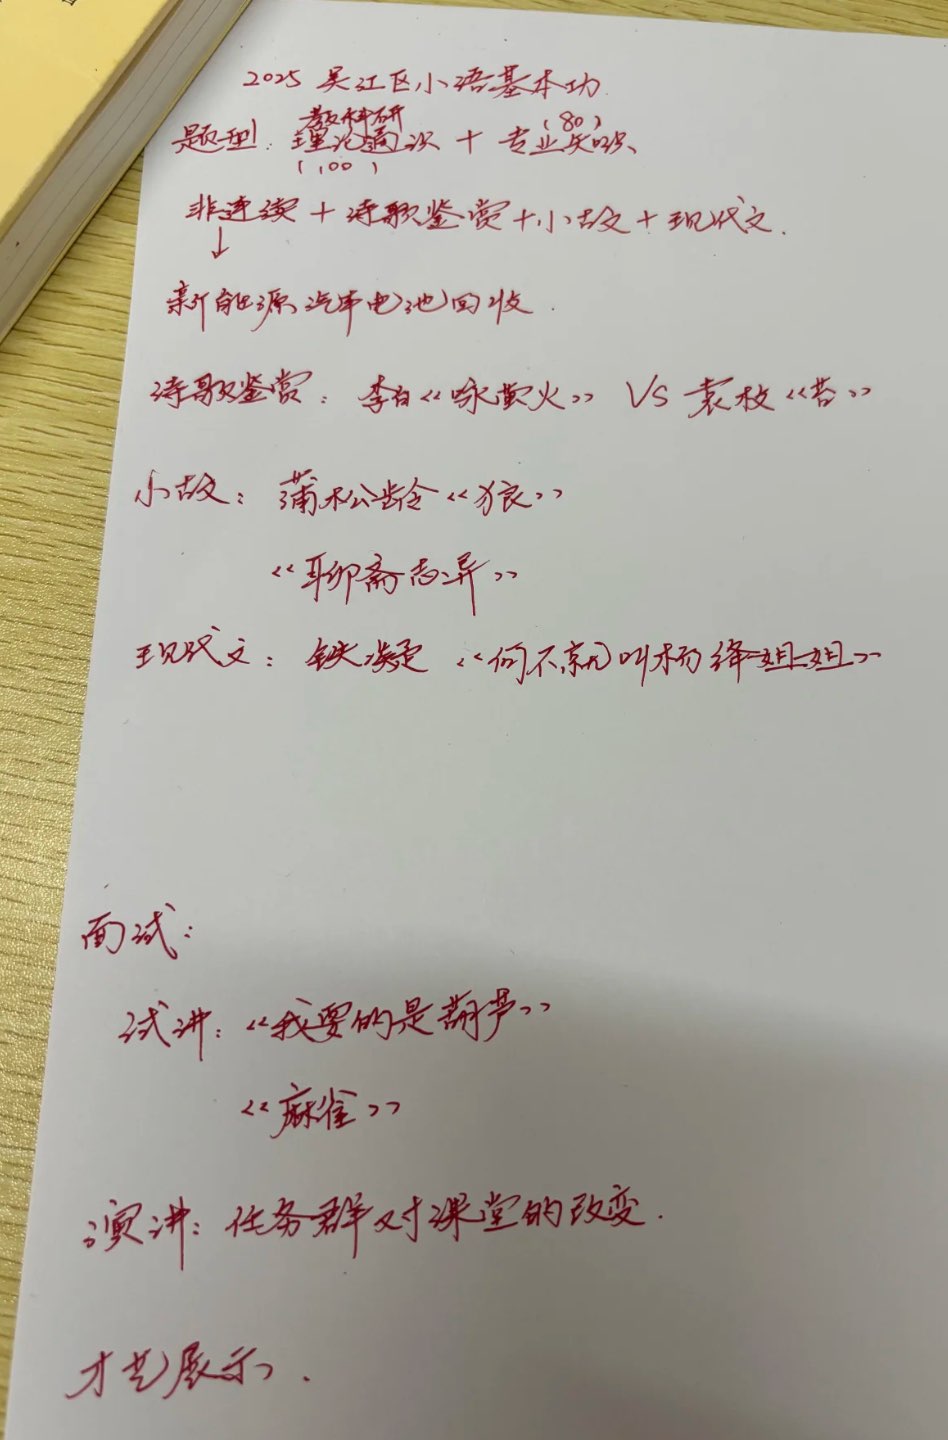 2025 吴江区小语基本功.
教科研 (80)
题型: 理论通识 + 专业知识
(100)
非连续 + 诗歌鉴赏 + 小古文 + 现代文.
↓
新能源汽车电池回收.
诗歌鉴赏: 李白《咏萤火》 VS 袁枚《苔》
小古文: 蒲松龄《狼》
《聊斋志异》
现代文: 铁凝《何不就叫杨绛姐姐》
面试:
试讲:《我要的是葫芦》
《麻雀》
演讲: 任务群对课堂的改变.
才艺展示.